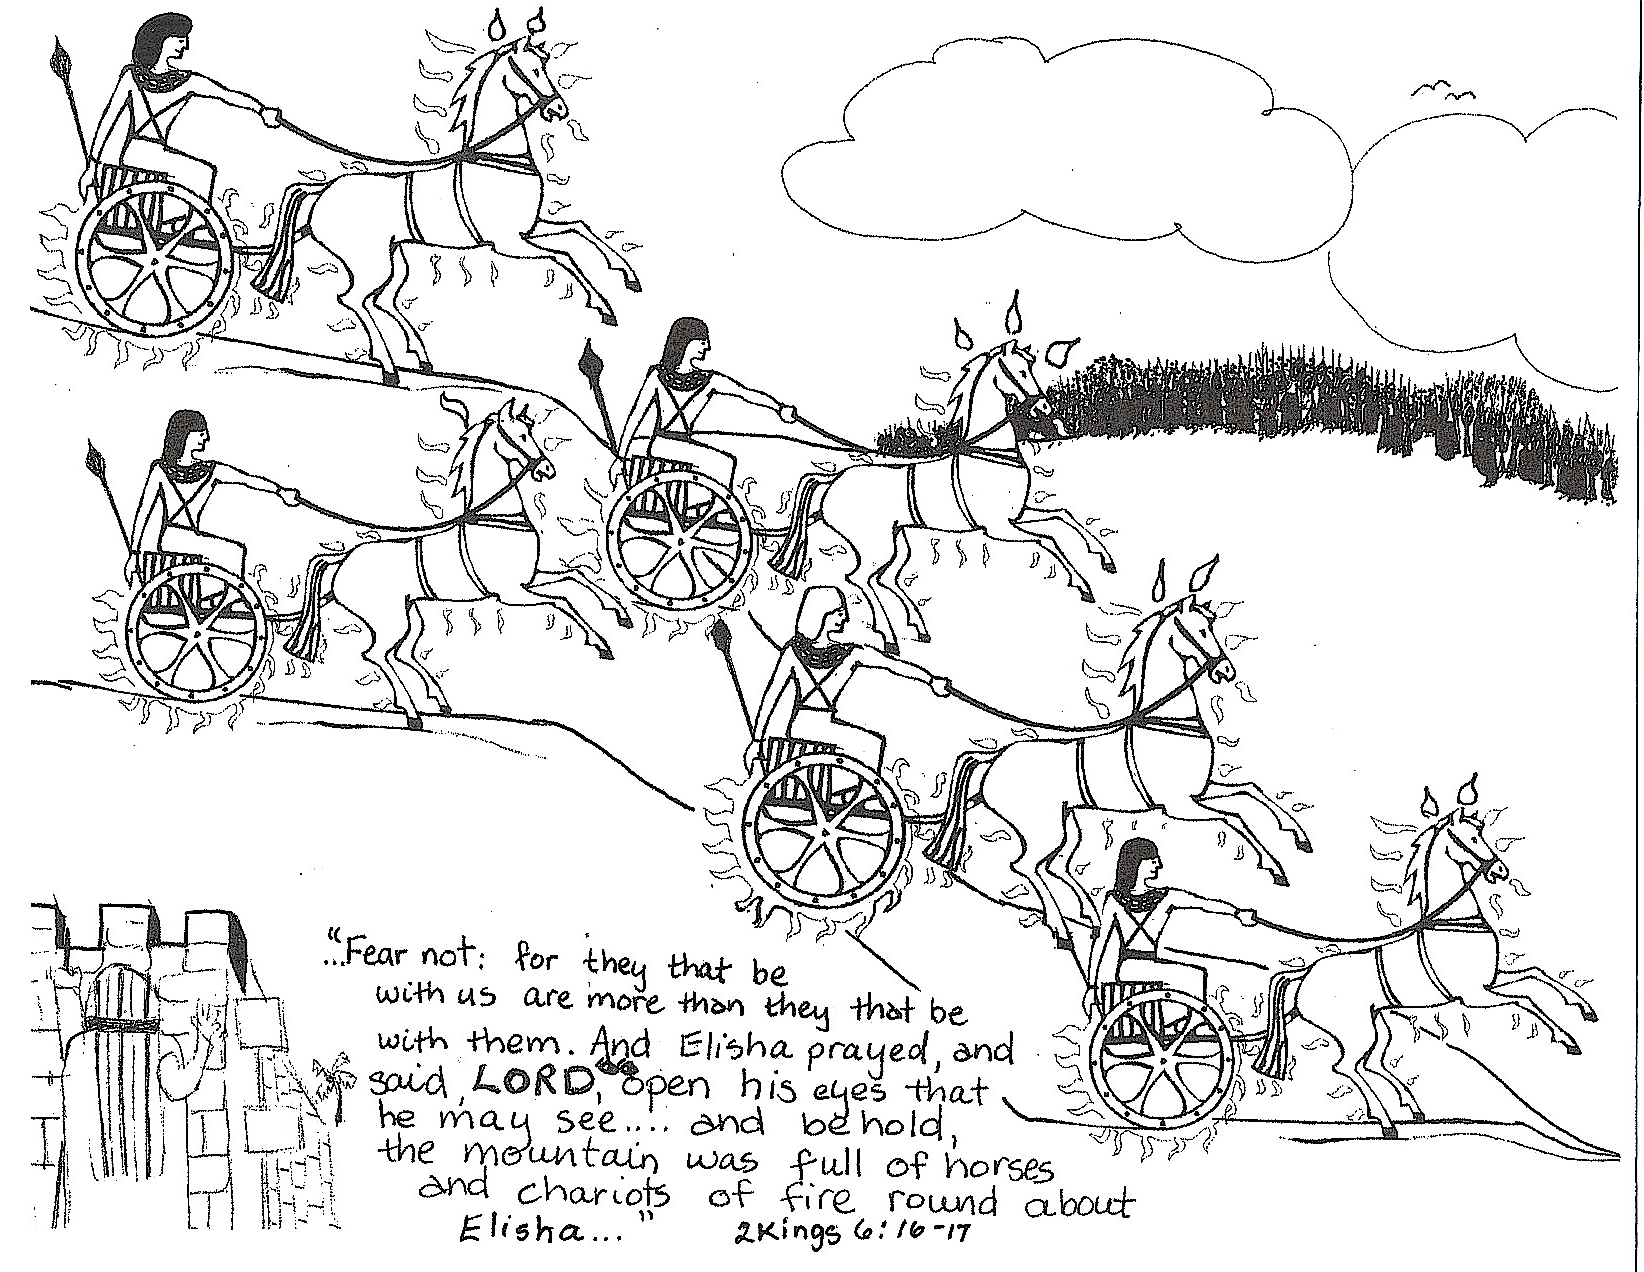 "...Fear not: for they that be
with us are more than they that be
with them. And Elisha prayed, and
said, LORD, open his eyes that
he may see.... and behold,
the mountain was full of horses
and chariots of fire round about
Elisha..." 2Kings 6:16-17